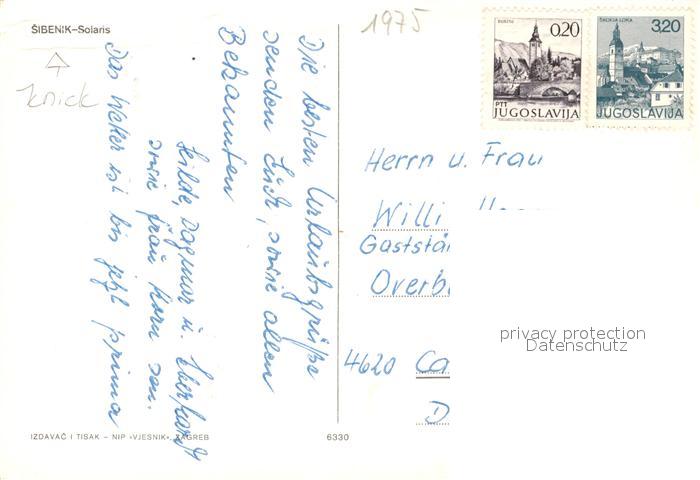 ŠIBENIK—Solaris
Knick
1975
BOHINJ
0.20
PTT
JUGOSLAVIJA
ŠKOFJA LOKA
3,20
JUGOSLAVIJA
Die besten Urlaubsgrüße
senden Euch, sowie allen
Bekannten
Hilde, Dagmar u. Eberhardt
sowie Frau Horn sen.
Das Wetter ist bis jetzt prima
Herrn u. Frau
Willi
Gaststä
Overb
4620 Ca
D
privacy protection
Datenschutz
IZDAVAČ I TISAK — NIP »VJESNIK«, ZAGREB
6330